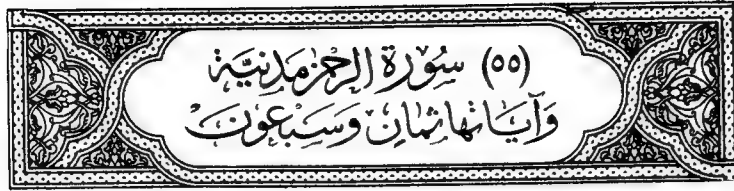 (٥٥) سُورَةُ الرَّحْمٰنِ مَدَنِيَّة
وَآيَاتُهَا ثَمَانٍ وَسَبْعُونَ